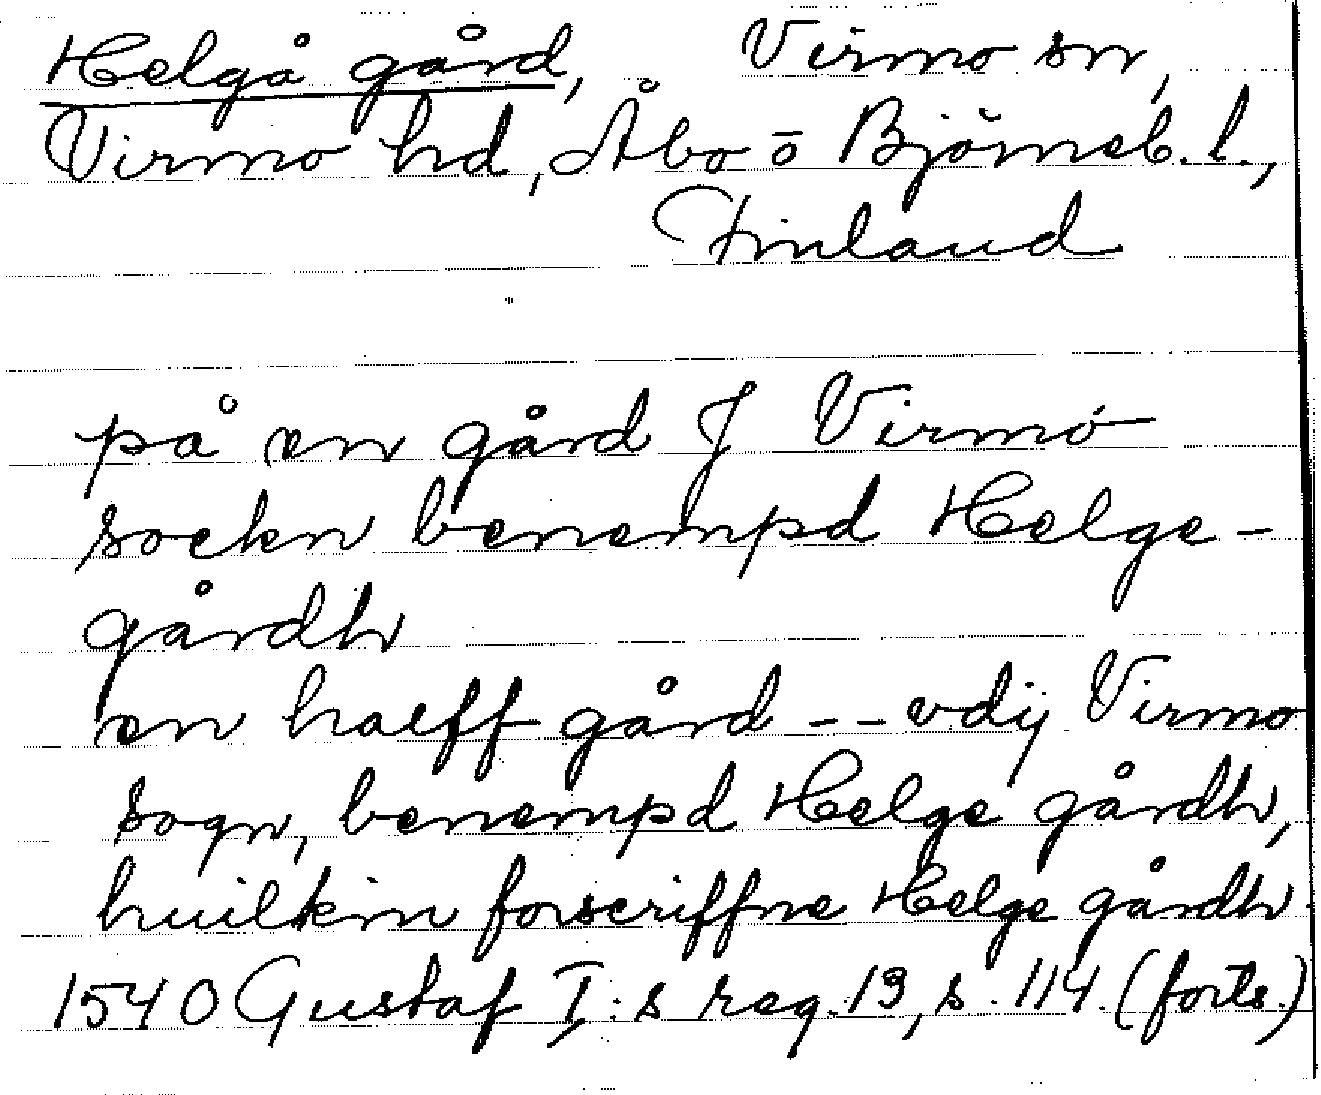 Helgå gård, Virmo sn,
Virmo hd, Åbo o Björneb. l.,
Finland
på en gård J Virmo
sockn benempd Helge-
gårdh
en haeff gård -- vdij Virmo
sogn, benempd Helge gårdh,
huilkin forscriffne Helge gårdh
1540 Gustaf I:s reg. 13, s. 114. (forts.)